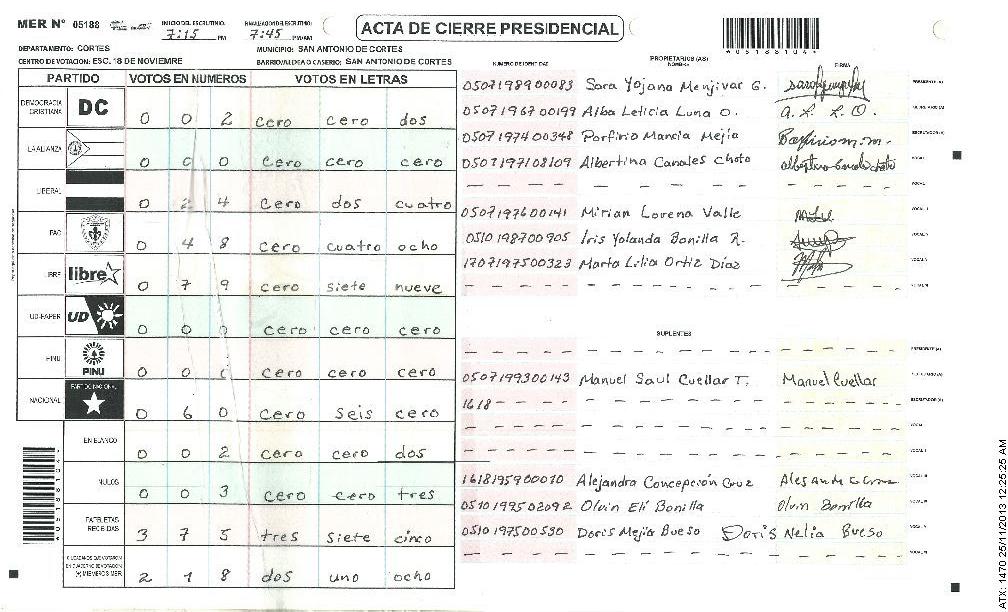 MER N° 05188
INICIO DEL ESCRUTINIO: 7:15 PM
FINALIZACION DEL ESCRUTINIO: 7:45 PM/AM
ACTA DE CIERRE PRESIDENCIAL
*05188104*
DEPARTAMENTO: CORTES
MUNICIPIO: SAN ANTONIO DE CORTES
CENTRO DE VOTACION: ESC. 18 DE NOVIEMBRE
BARRIO/ALDEA O CASERIO: SAN ANTONIO DE CORTES
PARTIDO VOTOS EN NUMEROS VOTOS EN LETRAS
DEMOCRACIA CRISTIANA DC 0 0 2 cero cero dos
LA ALIANZA 0 0 0 cero cero cero
LIBERAL 0 2 4 cero dos cuatro
PAC 0 4 8 cero cuatro ocho
LIBRE libre 0 7 9 cero siete nueve
UD-FAPER UD 0 0 0 cero cero cero
PINU PINU 0 0 0 cero cero cero
NACIONAL PARTIDO NACIONAL 0 6 0 cero seis cero
EN BLANCO 0 0 2 cero cero dos
NULOS 0 0 3 cero cero tres
PAPELETAS RECIBIDAS 3 7 5 tres siete cinco
CIUDADANOS QUE VOTARON EN CUADERNO DE VOTACION (+) MIEMBROS MER 2 1 8 dos uno ocho
PROPIETARIOS (AS)
NUMERO DE IDENTIDAD NOMBRE FIRMA
0507198900083 Sara Yojana Menjivar G. PRESIDENTE (A)
0507196700199 Alba Leticia Luna O. A. L. L. O. SECRETARIO (A)
0507197400348 Porfirio Mancia Mejia Porfirio m. m. ESCRUTADOR (A)
0507197108109 Albertina Canales Choto albertina canales choto VOCAL I
0507197600141 Mirian Lorena Valle
0510198700905 Iris Yolanda Bonilla R.
1707197500323 Marta Lilia Ortiz Diaz
SUPLENTES
PRESIDENTE (A)
0507199300143 Manuel Saul Cuellar T. Manuel Cuellar SECRETARIO (A)
1618 ESCRUTADOR (A)
1618195900010 Alejandra Concepción Cruz
0510199502092 Olvin Elí Bonilla Olvin Bonilla
0510197500530 Doris Mejia Bueso Doris Nelia Bueso
ATX: 1470 25/11/2013 12:25:25 AM